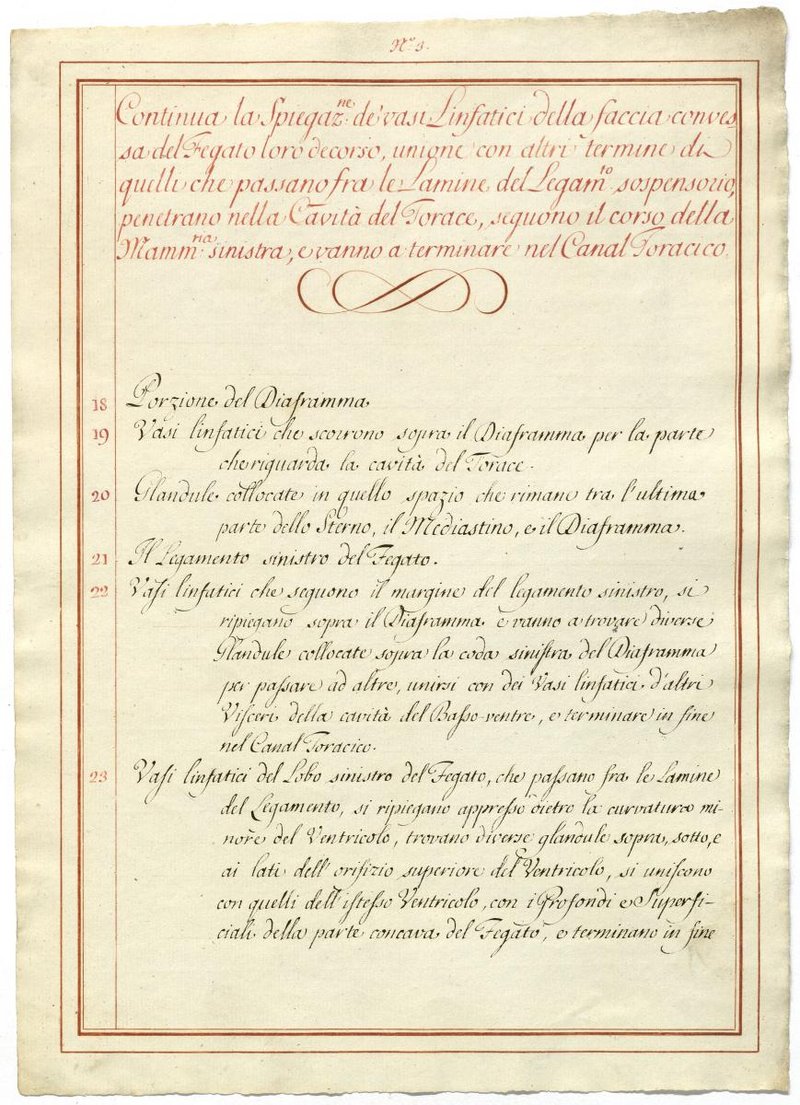 N.º 3.
Continua la Spiegaz.ne de' vasi Linfatici della faccia conves
sa del Fegato loro decorso, unione con altri termine di
quelli che passano fra le Lamine del Legam.to sospensorio,
penetrano nella Cavità del Torace, seguono il corso della
Mamm.ria sinistra, e vanno a terminare nel Canal Toracico.
18 Porzione del Diaframma
19 Vasi linfatici che scorrono sopra il Diaframma per la parte
che riguarda la cavità del Torace.
20 Glandule collocate in quello spazio che rimane tra l'ultima
parte dello Sterno, il Mediastino, e il Diaframma.
21 Il Legamento sinistro del Fegato.
22 Vasi linfatici che seguono il margine del legamento sinistro, si
ripiegano sopra il Diaframma e vanno a trovare diverse
Glandule collocate sopra la coda sinistra del Diaframma
per passare ad altre, unirsi con dei Vasi linfatici d'altri
Visceri della cavità del Basso-ventre, e terminare in fine
nel Canal Toracico.
23 Vasi linfatici del Lobo sinistro del Fegato, che passano fra le Lamine
del Legamento, si ripiegano appresso dietro la curvatura mi-
nore del Ventricolo, trovano diverse glandule sopra, sotto, e
ai lati dell' orifizio superiore del Ventricolo, si uniscono
con quelli dell' istesso Ventricolo, con i Profondi e Superfi-
ciali della parte concava del Fegato, e terminano in fine